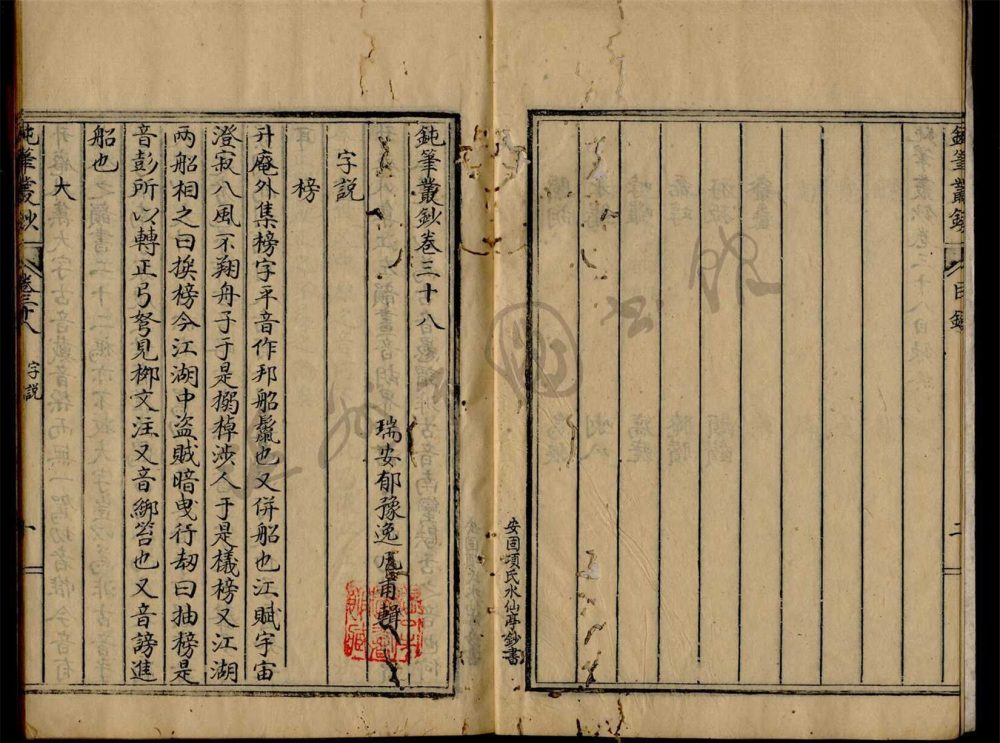 鈍筆叢鈔
目錄
二
安固項氏水仙亭鈔書
鈍筆叢鈔卷三十八
瑞安郁豫逸甫輯
字説
榜
升庵外集榜字平音作邦船鬣也又併船也江賦宇宙
澄寂八風不翔舟子于是搦棹涉人于是檥榜又江湖
兩船相之曰挨榜今江湖中盜賊暗曳行刼曰抽榜是
音彭所以轉正弓弩見栁文注又音綁笞也又音謗進
船也
大
鈍筆叢鈔
卷三十八
字説